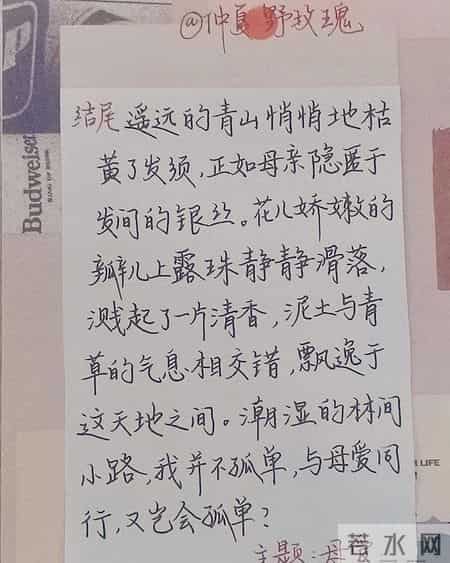 @仲夏野玫瑰
Budweiser
KING OF BEERS
结尾 遥远的青山悄悄地枯
黄了发须,正如母亲隐匿于
发间的银丝。花儿娇嫩的
瓣儿上露珠静静滑落,
溅起了一片清香,泥土与青
草的气息相交错,飘逸于
这天地之间。潮湿的林间
小路,我并不孤单,与母爱同
行,又岂会孤单?
LIFE
主题:母爱
若水网